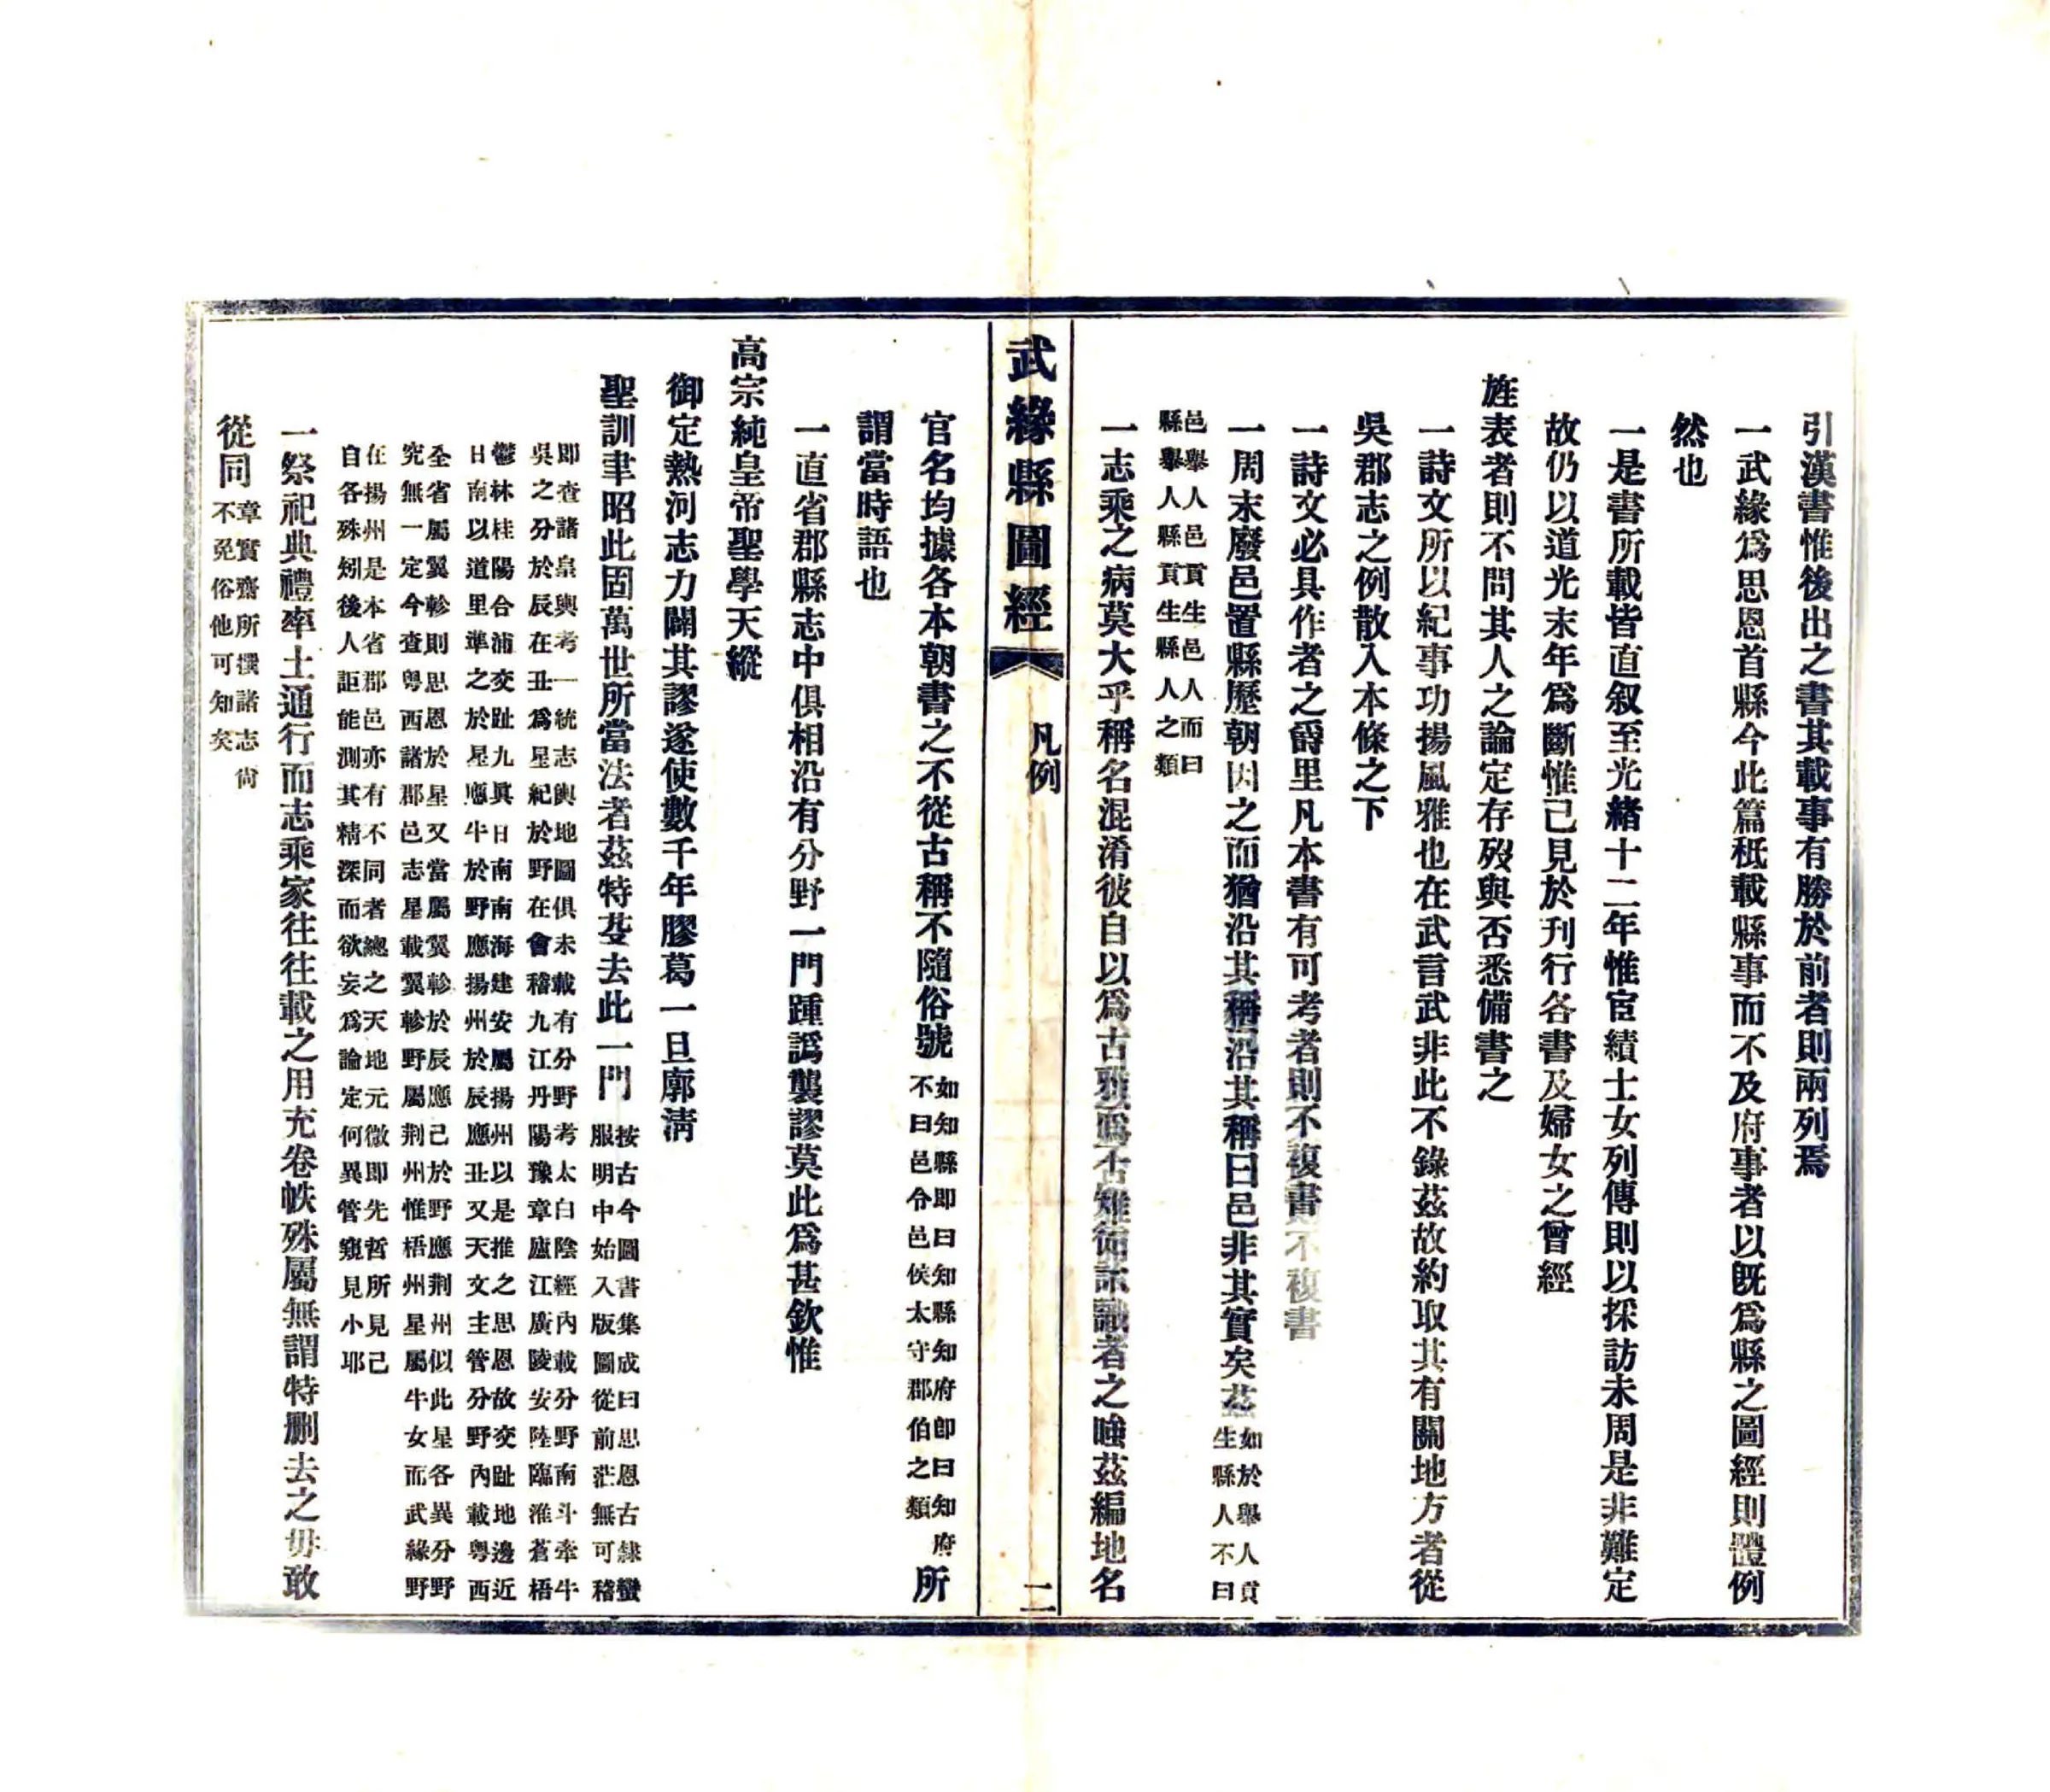 引漢書惟後出之書其載事有勝於前者則兩列焉
一武緣爲思恩首縣今此篇秪載縣事而不及府事者以既爲縣之圖經則體例
然也
一是書所載皆直叙至光緒十二年惟宦績士女列傳則以採訪未周是非難定
故仍以道光末年爲斷惟已見於刊行各書及婦女之曾經
旌表者則不問其人之論定存歿與否悉備書之
一詩文所以紀事功揚風雅也在武言武非此不錄茲故約取其有關地方者從
吳郡志之例散入本條之下
一詩文必具作者之爵里凡本書有可考者則不複書
一周末廢邑置縣歷朝因之而猶沿其稱沿其稱曰邑非其實矣茲
如於舉人貢
生縣人不曰
邑舉人邑貢生邑人而曰
縣舉人縣貢生縣人之類
一志乘之病莫大乎稱名混淆彼自以爲古雅
識者之嗤茲編地名
武緣縣圖經
凡例
二
官名均據各本朝書之不從古稱不隨俗號
如知縣即曰知縣知府卽曰知府
不曰邑令邑侯太守郡伯之類
所
謂當時語也
一直省郡縣志中俱相沿有分野一門踵譌襲謬莫此爲甚欽惟
高宗純皇帝聖學天縱
御定熱河志力闢其謬遂使數千年膠葛一旦廓清
聖訓聿昭此固萬世所當法者茲特芟去此一門
按古今圖書集成曰思恩古隸蠻
服明中始入版圖從前茫無可稽
即查諸皇輿考一統志輿地圖俱未載有分野考太白陰經內載分野南斗牽牛
吳之分於辰在丑爲星紀於野在會稽九江丹陽豫章廬江廣陵安陸臨淮蒼梧
鬱林桂陽合浦交趾九眞日南南海建安屬揚州以是推之思恩故交趾地邊近
日南以道里準之於星應牛於野應揚州於辰應丑又天文主管分野內載粤西
全省屬翼軫則思恩於星又當屬翼軫於辰應己於野應荆州似此星各異分野
究無一定今查粤西諸郡邑志星載翼軫野屬荆州惟梧州星屬牛女而武緣野
在揚州是本省郡邑亦有不同者總之天地元微即先哲所見已
自各殊矧後人詎能測其精深而欲妄爲論定何異管窺見小耶
一祭祀典禮率土通行而志乘家往往載之用充卷帙殊屬無謂特删去之毋敢
從同
章實齋所撰諸志尙
不免俗他可知矣